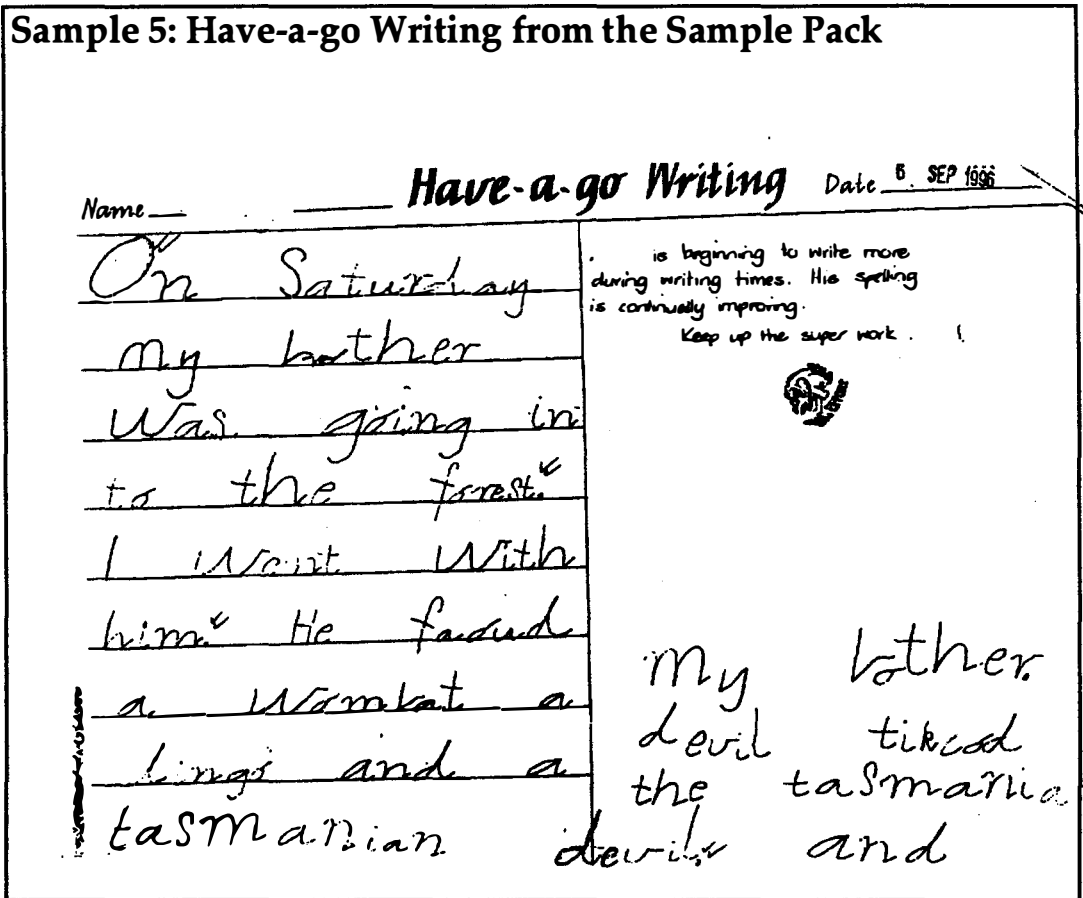 Sample 5: Have-a-go Writing from the Sample Pack
Name
Have-a-go Writing
Date 6 SEP 1996
On Saturday
my bother
Was going in
to the forest.
I Went With
him. He
a Wombat a
and a
tasmanian devil. and
is beginning to write more
during writing times. His spelling
is continually improving.
Keep up the super work. !
my bother
devil
the tasmania